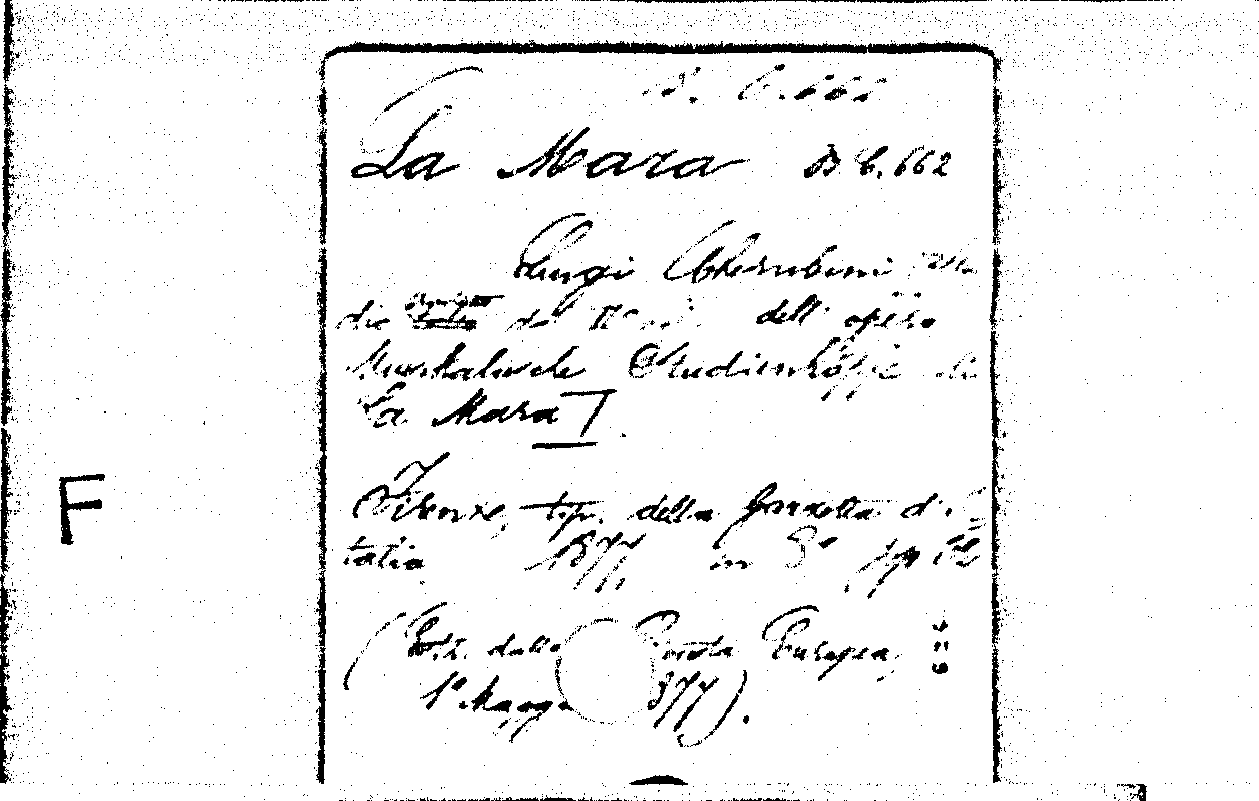 B. C. 662
La Mara B C. 662
Luigi Cherubini
dio dal dell' opera
Musikalische Studienköpfe di
La Mara I.
F
Firenze, tip. della Gazzetta d' I
talia 1877, in 8° pp
(Estr. dalla Rivista Europea,
1° Maggio 1877).